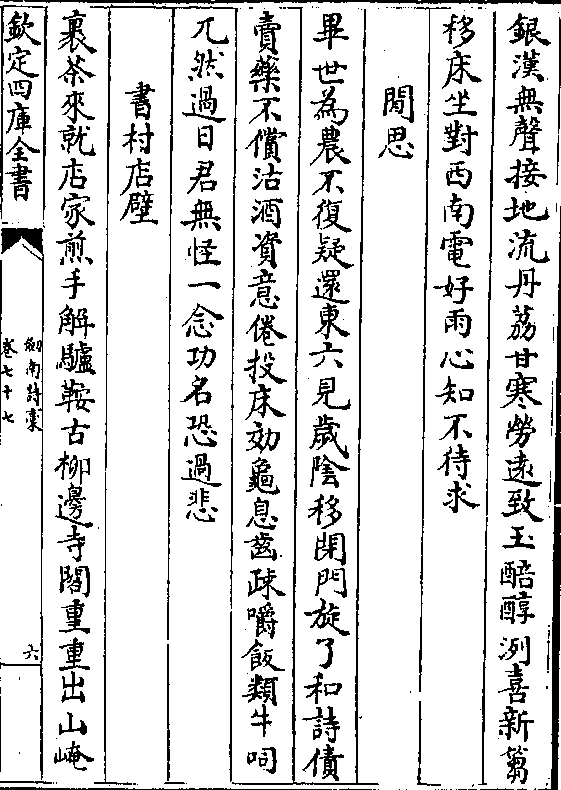 銀漢無聲接地流丹荔甘寒勞逺致玉醅醇洌喜新篘
移床坐對西南電好雨心知不待求
閒思
畢世為農不復疑還東六見歲隂移閉門旋了和詩債
賣藥不償沽酒資意倦投床効龜息齒疎嚼飯類牛呞
兀然過日君無怪一念功名恐過悲
書村店壁
裹茶來就店家煎手解驢鞍古柳邊寺閣重重出山崦
欽定四庫全書
劍南詩稾
卷七十七
六